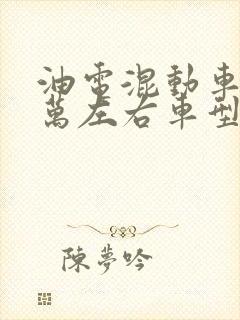 油電混動車
萬左右車型
陳夢吟